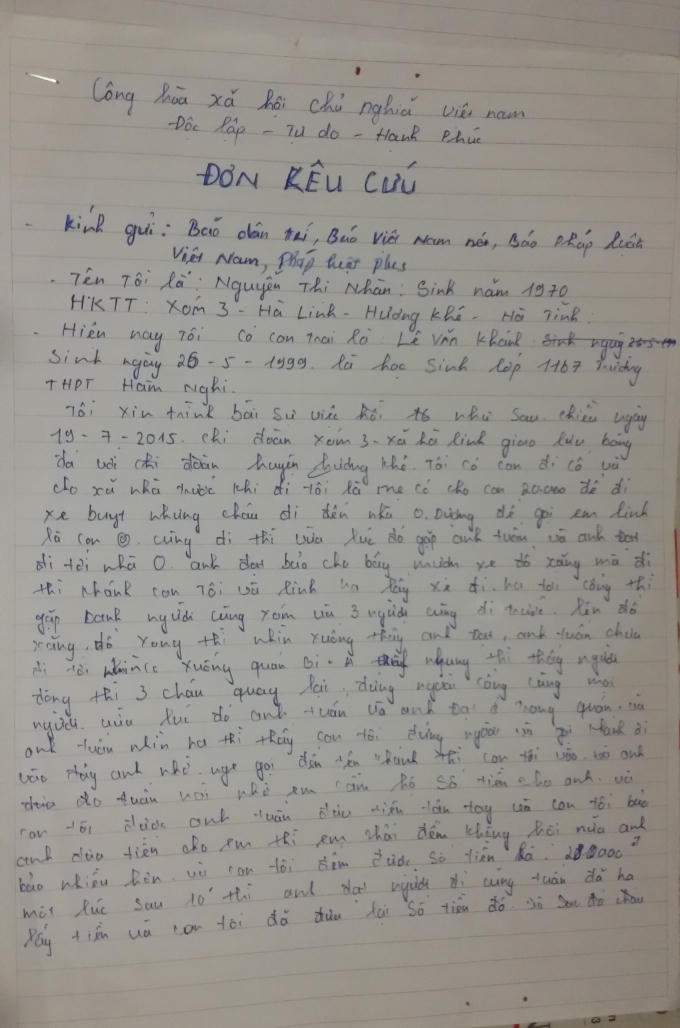 Công hòa xã hội chủ nghiã việt nam
Độc lập - Tự do - Hanh Phúc
ĐƠN KÊU CỨU
- Kính gửi : Báo dân trí, Báo Việt Nam nét, Báo Pháp luật
Việt Nam, Pháp luật plus
- Tên Tôi là : Nguyễn Thi Nhàn : Sinh năm 1970
HKTT : Xóm 3 - Hà Linh - Hương Khê - Hà Tĩnh.
- Hiên nay Tôi có con trai là : Lê Văn Khánh
Sinh ngày 26 - 5 - 1999. là học Sinh lớp 11B7 Trường
THPT Hàm Nghi.
Tôi xin trình bái Sư viêc hồi 16 như Sau. chiều ngày
19 - 7 - 2015. chi đoàn xóm 3 - xã hà linh giao lưu bóng
đá với chi đoàn huyện hương khê. Tôi có con đi cổ vũ
cho xã nhà trước khi đi tôi là mẹ có cho con 20.000 để đi
xe buyt nhưng cháu đi đến nhà O. Dương để goi em linh
là con O. cùng đi thì vừa lúc đó gặp anh tuân và anh Đat
đi tới nhà O. anh đat bảo cho bây mươn xe đổ xăng mà đi
thì khánh con Tôi và linh ra lấy xe đi. ra tới cổng thì
gặp Danh người cùng xóm và 3 người cùng đi trước. lên đổ
xăng. đổ xong thì nhìn xuống thấy anh Đat, anh tuân chưa
đi tới xuống quán Bi-A nhưng thì thấy người
đông thì 3 cháu quay lại, đứng ngoài cổng cùng moi
người. vừa lúc đó anh tuân và anh Đat ở trong quán. và
anh tuân nhìn ra thì thấy con tôi đứng ngoài và goi khánh ơi
vào đây anh nhờ. nge gọi đến tên khánh thì con tôi vào. và anh
đưa do tuân nói nhờ em cầm hô Số tiền cho anh. và
con tôi được anh tuân đưa tiền tân tay và con tôi bảo
anh đưa tiền cho em thì em phải đếm không hồi nữa anh
bảo nhiều hơn. và con tôi đếm được số tiền là.
môt lúc sau 10' thì anh đat người đi cùng tuân đã ra
lấy tiền và con tôi đã đưa lại số tiền đó. và sau đó cháu